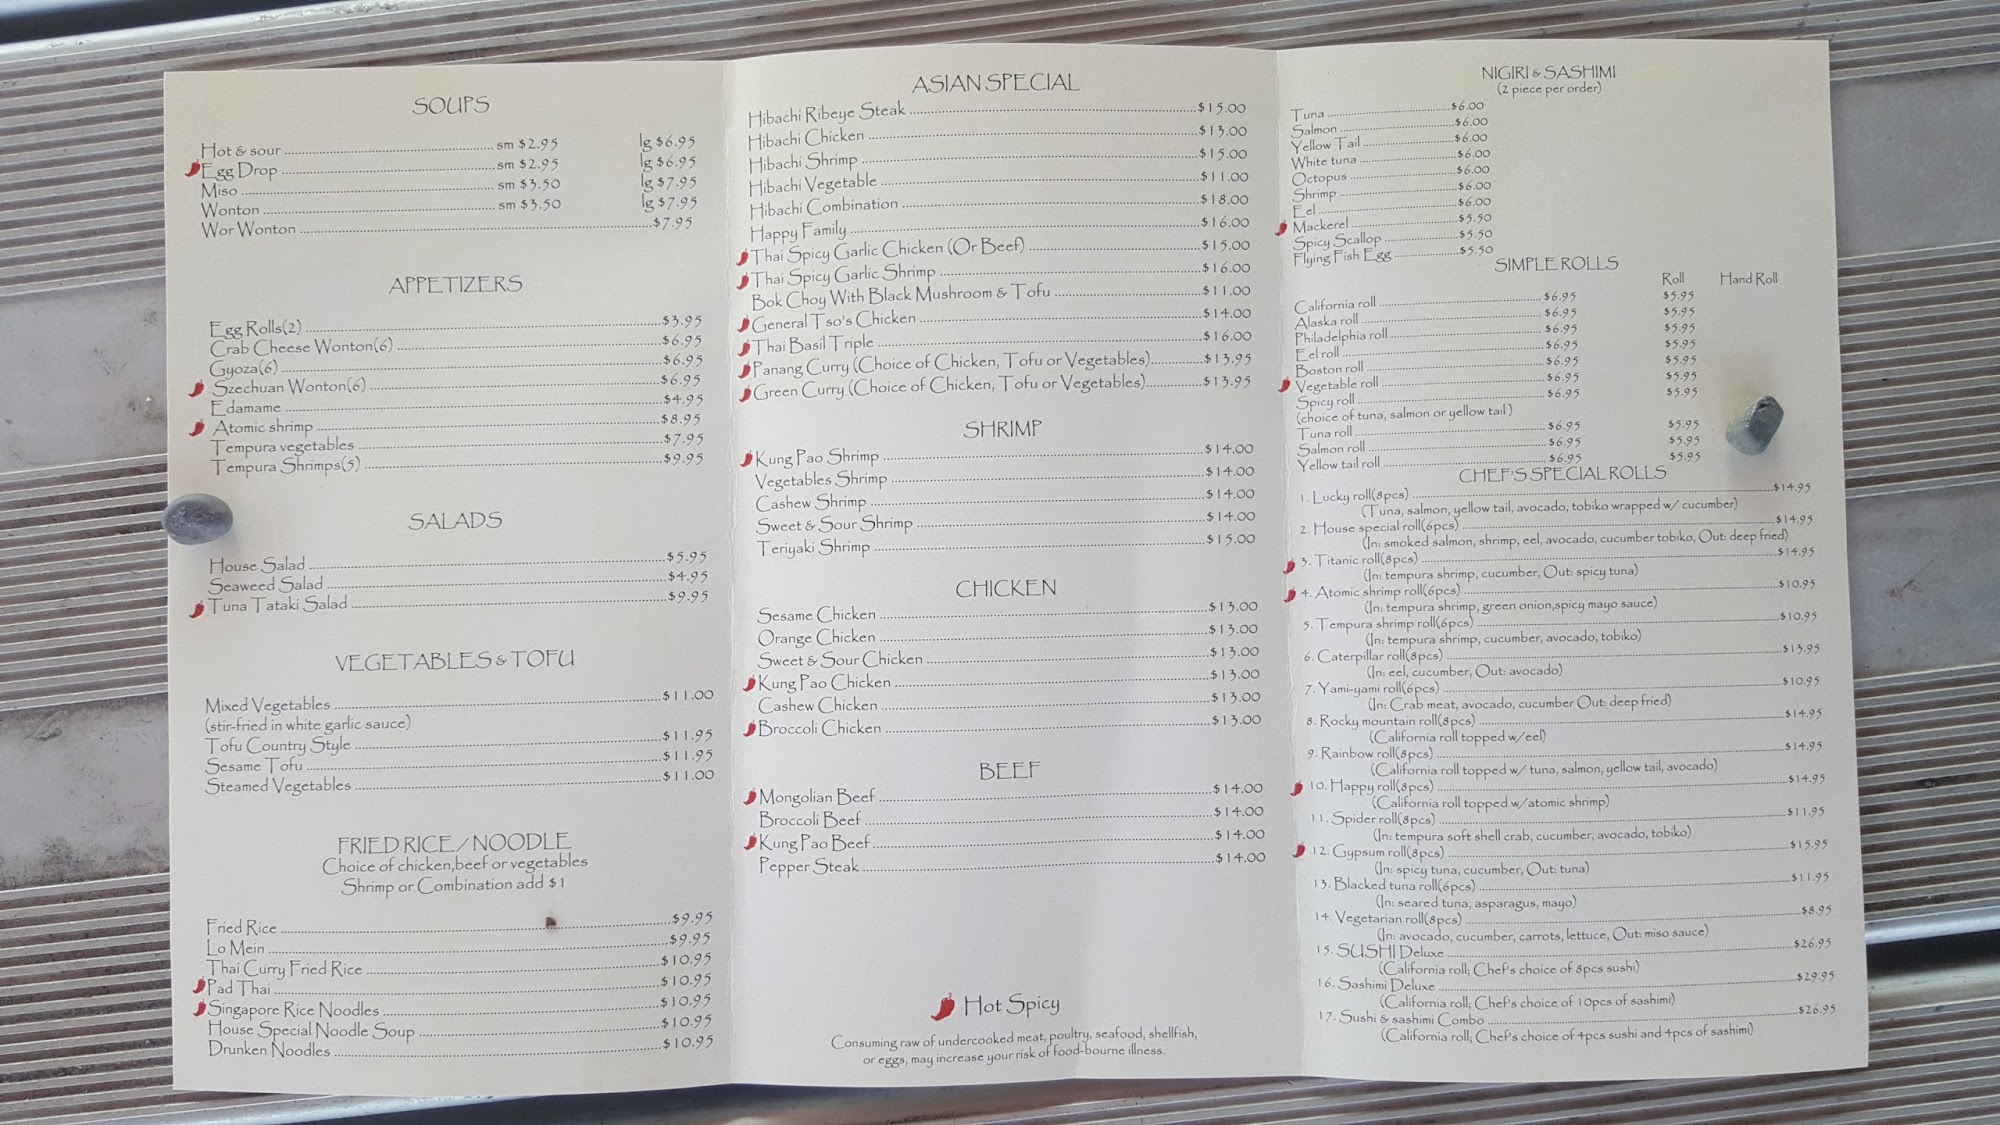 SOUPS
Hot & sour sm $2.95 lg $6.95
Egg Drop sm $2.95 lg $6.95
Miso sm $3.50 lg $7.95
Wonton sm $3.50 lg $7.95
Wor Wonton $7.95
APPETIZERS
Egg Rolls(2) $3.95
Crab Cheese Wonton(6) $6.95
Gyoza(6) $6.95
Szechuan Wonton(6) $6.95
Edamame $4.95
Atomic shrimp $8.95
Tempura vegetables $7.95
Tempura Shrimps(5) $9.95
SALADS
House Salad $5.95
Seaweed Salad $4.95
Tuna Tataki Salad $9.95
VEGETABLES & TOFU
Mixed Vegetables $11.00
(stir-fried in white garlic sauce)
Tofu Country Style $11.95
Sesame Tofu $11.95
Steamed Vegetables $11.00
FRIED RICE / NOODLE
Choice of chicken,beef or vegetables
Shrimp or Combination add $1
Fried Rice $9.95
Lo Mein $9.95
Thai Curry Fried Rice $10.95
Pad Thai $10.95
Singapore Rice Noodles $10.95
House Special Noodle Soup $10.95
Drunken Noodles $10.95
ASIAN SPECIAL
Hibachi Ribeye Steak $15.00
Hibachi Chicken $13.00
Hibachi Shrimp $15.00
Hibachi Vegetable $11.00
Hibachi Combination $18.00
Happy Family $16.00
Thai Spicy Garlic Chicken (Or Beef) $15.00
Thai Spicy Garlic Shrimp $16.00
Bok Choy With Black Mushroom & Tofu $11.00
General Tso's Chicken $14.00
Thai Basil Triple $16.00
Panang Curry (Choice of Chicken, Tofu or Vegetables) $13.95
Green Curry (Choice of Chicken, Tofu or Vegetables) $13.95
SHRIMP
Kung Pao Shrimp $14.00
Vegetables Shrimp $14.00
Cashew Shrimp $14.00
Sweet & Sour Shrimp $14.00
Teriyaki Shrimp $15.00
CHICKEN
Sesame Chicken $13.00
Orange Chicken $13.00
Sweet & Sour Chicken $13.00
Kung Pao Chicken $13.00
Cashew Chicken $13.00
Broccoli Chicken $13.00
BEEF
Mongolian Beef $14.00
Broccoli Beef $14.00
Kung Pao Beef $14.00
Pepper Steak $14.00
Hot Spicy
Consuming raw of undercooked meat, poultry, seafood, shellfish,
or eggs, may increase your risk of food-bourne illness.
NIGIRI & SASHIMI
(2 piece per order)
Tuna $6.00
Salmon $6.00
Yellow Tail $6.00
White tuna $6.00
Octopus $6.00
Shrimp $6.00
Eel $6.00
Mackerel $5.50
Spicy Scallop $5.50
Flying Fish Egg $5.50
SIMPLE ROLLS
Roll Hand Roll
California roll $6.95 $5.95
Alaska roll $6.95 $5.95
Philadelphia roll $6.95 $5.95
Eel roll $6.95 $5.95
Boston roll $6.95 $5.95
Vegetable roll $6.95 $5.95
Spicy roll $6.95 $5.95
(choice of tuna, salmon or yellow tail)
Tuna roll $6.95 $5.95
Salmon roll $6.95 $5.95
Yellow tail roll $6.95 $5.95
CHEF'S SPECIAL ROLLS
1. Lucky roll(8pcs) $14.95
(Tuna, salmon, yellow tail, avocado, tobiko wrapped w/ cucumber)
2. House special roll(6pcs) $14.95
(In: smoked salmon, shrimp, eel, avocado, cucumber tobiko, Out: deep fried)
3. Titanic roll(8pcs) $14.95
(In: tempura shrimp, cucumber, Out: spicy tuna)
4. Atomic shrimp roll(6pcs) $10.95
(In: tempura shrimp, green onion,spicy mayo sauce)
5. Tempura shrimp roll(6pcs) $10.95
(In: tempura shrimp, cucumber, avocado, tobiko)
6. Caterpillar roll(8pcs) $13.95
(In: eel, cucumber, Out: avocado)
7. Yami-yami roll(6pcs) $10.95
(In: Crab meat, avocado, cucumber Out: deep fried)
8. Rocky mountain roll(8pcs) $14.95
(California roll topped w/eel)
9. Rainbow roll(8pcs) $14.95
(California roll topped w/ tuna, salmon, yellow tail, avocado)
10. Happy roll(8pcs) $14.95
(California roll topped w/atomic shrimp)
11. Spider roll(8pcs) $11.95
(In: tempura soft shell crab, cucumber, avocado, tobiko)
12. Gypsum roll(8pcs) $15.95
(In: spicy tuna, cucumber, Out: tuna)
13. Blacked tuna roll(6pcs) $11.95
(In: seared tuna, asparagus, mayo)
14. Vegetarian roll(8pcs) $8.95
(In: avocado, cucumber, carrots, lettuce, Out: miso sauce)
15. SUSHI Deluxe $26.95
(California roll; Chef's choice of 8pcs sushi)
16. Sashimi Deluxe $29.95
(California roll; Chef's choice of 10pcs of sashimi)
17. Sushi & sashimi Combo $26.95
(California roll; Chef's choice of 4pcs sushi and 4pcs of sashimi)